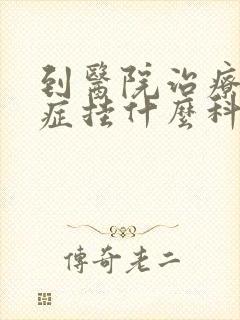 到醫院治療
症挂什麼科
傳奇老二